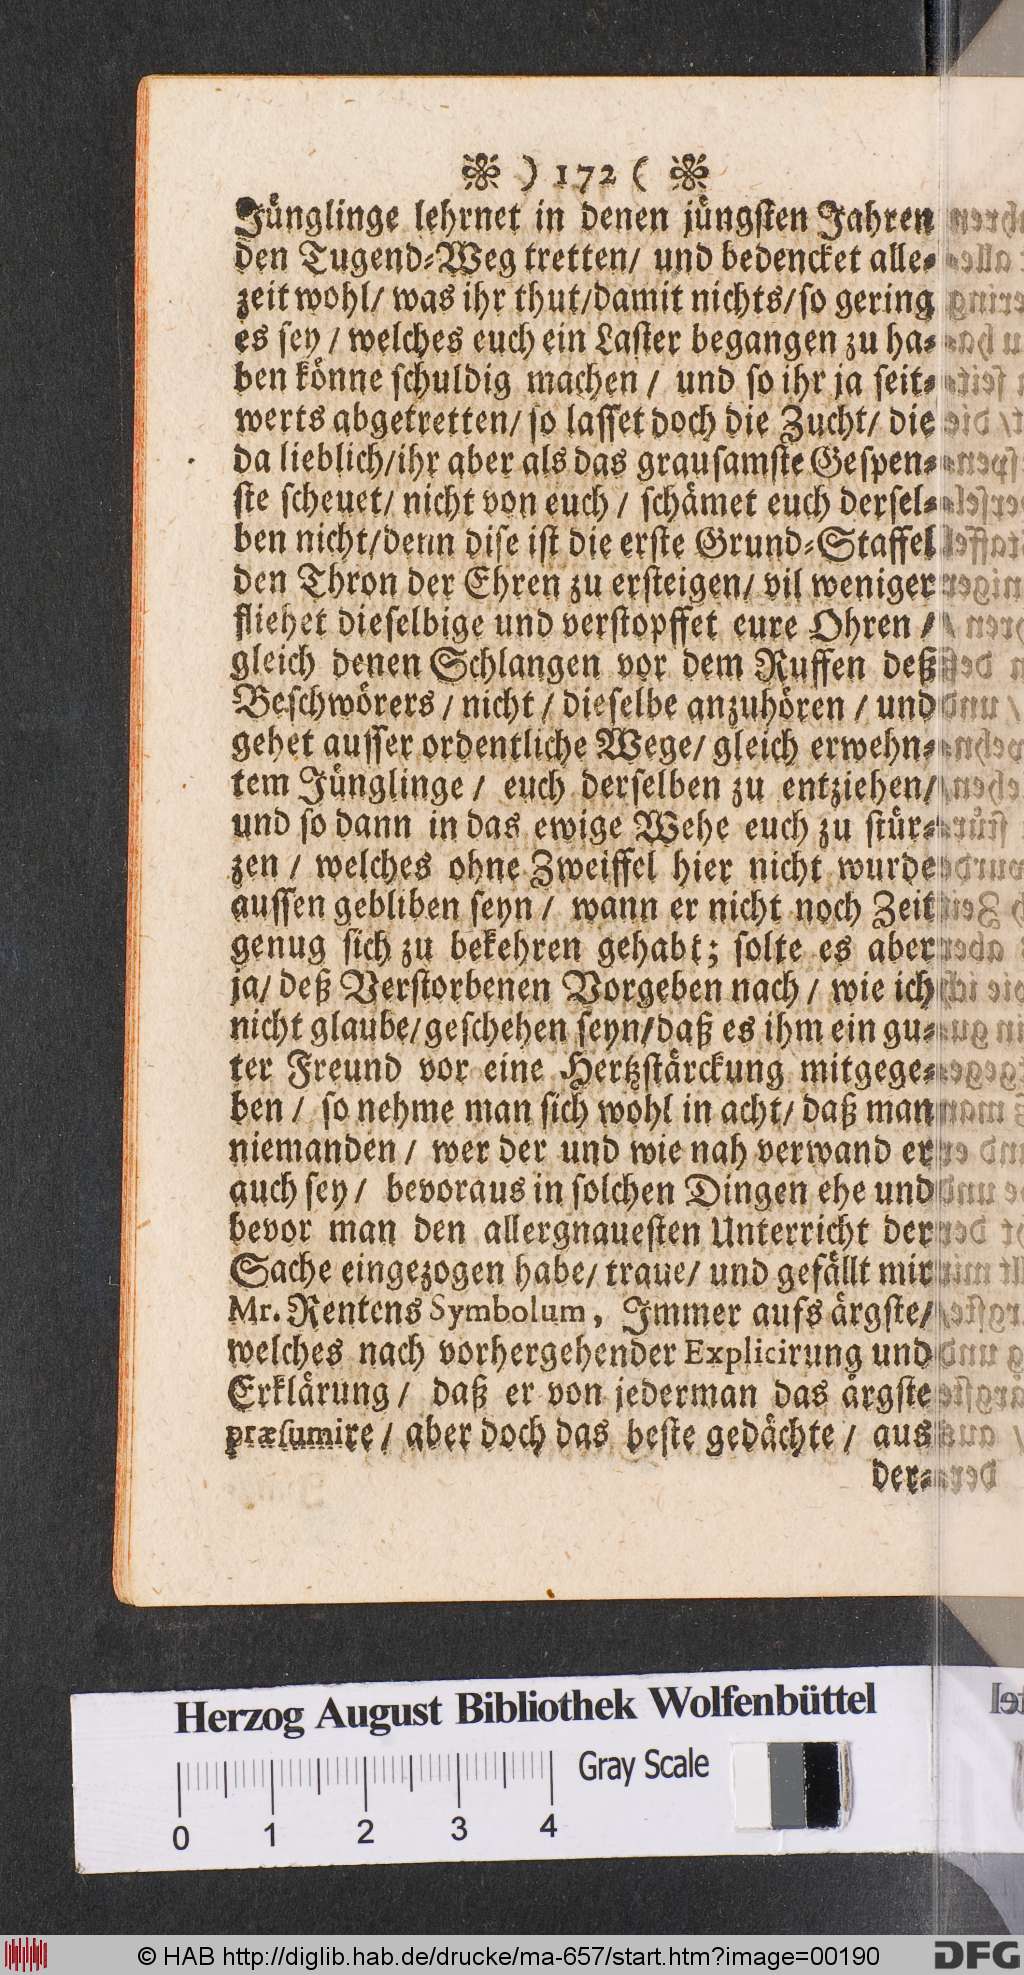 ) 172 (
Jünglinge lehrnet in denen jüngsten Jahren
den Tugend-Weg tretten/ und bedencket alle-
zeit wohl/ was ihr thut/damit nichts/so gering
es sey / welches euch ein Laster begangen zu ha-
ben könne schuldig machen / und so ihr ja seit-
werts abgetretten/ so lasset doch die Zucht/ die
da lieblich/ihr aber als das grausamste Gespen-
ste scheuet/ nicht von euch / schämet euch dersel-
ben nicht/denn dise ist die erste Grund-Staffel
den Thron der Ehren zu ersteigen/ vil weniger
fliehet dieselbige und verstopffet eure Ohren /
gleich denen Schlangen vor dem Ruffen deß
Beschwörers / nicht / dieselbe anzuhören / und
gehet ausser ordentliche Wege/ gleich erwehn-
tem Jünglinge / euch derselben zu entziehen/
und so dann in das ewige Wehe euch zu stür-
zen / welches ohne Zweiffel hier nicht wurde
aussen gebliben seyn / wann er nicht noch Zeit
genug sich zu bekehren gehabt; solte es aber
ja/ deß Verstorbenen Vorgeben nach / wie ich
nicht glaube/geschehen seyn/daß es ihm ein gu-
ter Freund vor eine Hertzstärckung mitgege-
ben / so nehme man sich wohl in acht/ daß man
niemanden / wer der und wie nah verwand er
auch sey / bevoraus in solchen Dingen ehe und
bevor man den allergnauesten Unterricht der
Sache eingezogen habe/ traue/ und gefällt mir
Mr. Rentens Symbolum, Immer aufs ärgste/
welches nach vorhergehender Explicirung und
Erklärung / daß er von jederman das ärgste
præsumire / aber doch das beste gedächte / aus
der-
Herzog August Bibliothek Wolfenbüttel
Gray Scale
0 1 2 3 4
© HAB http://diglib.hab.de/drucke/ma-657/start.htm?image=00190
DFG